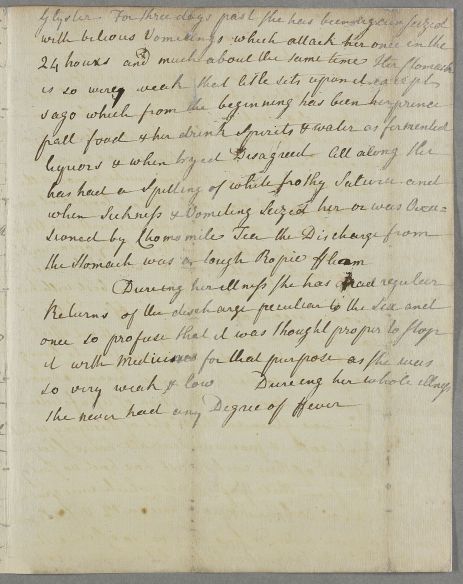 Glyster. For three days past she has been again seized
with bilious Vomitings which attack her once in the
24 hours and much about the same time Her Stomach
is so very weak that little sits upon it except
sago which from the beginning has been her prince
pall food & her drink Spirits & water as fermented
liquors & when tryed Disagreed All along she
has had a Spitting of white frothy Saliva and
when Sickness & Vomiting Seized her or was Occa=
sioned by Chamomile Tea the Discharge from
the Stomach was a tough Ropie fleam
Dureing her illness she has had regular
Returns of the discharge peculiar to the Sex and
once so profuse that it was thought proper to stop
it with Medicines for that purpose as she was
so very weak & low Dureing her whole illness
she never had any Degree of ffever